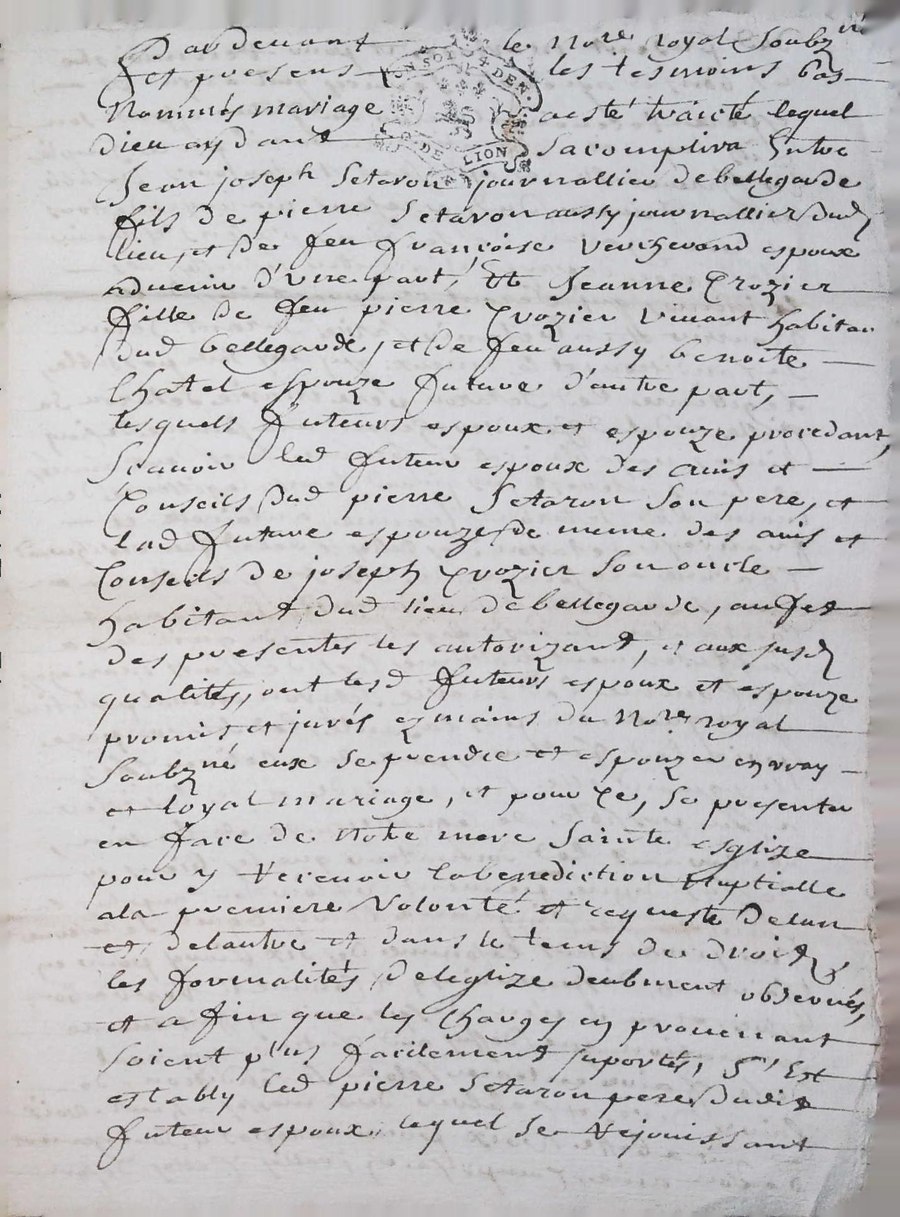 Pardevant le No.re royal Soubz.né
et presens les tesmoins bas
Nommés mariage a esté traicté lequel
dieu aydant sacomplira Entre
Jean joseph Setaron journallier de bellegarde
fils de pierre Setaron aussy journallier dud
lieu, et de feu françoise Vercherand espoux
advenir d'Une part, Et Jeanne Crozier
fille de feu pierre Crozier vivant habitan
dud bellegarde, et de feu aussy benoite
Chatel espouze future d'autre part,
lesquels futeurs espoux et espouze procedant,
Scavoir led futeur espoux des avis et
Conseils dud pierre Setaron Son pere, et
lad future espouze de meme des avis et
Conseils de joseph Crozier Son oncle
habitant dud lieu de bellegarde, au fet
des presentes les autorizant, et aux susd
qualités, ont lesd futeurs espoux et espouze
promis et jurés ez mains du No.re royal
Soubz.né eux se prendre et espouzer en vray
et loyal mariage, et pour Ce, Se presenter
en face de Notre mere Sainte esglize
pour y recevoir la benediction Nuptialle
a la premiere Volonté et requeste de lun
et de lautre et dans le tems de droit,
les formalités de leglize deubment observés,
et afin que les Charges en provenant
soient plus facilement suportés, S'Est
estably led pierre Setaron pere dudit
futeur espoux, lequel se rejouissant
CON SOL DEN.
DE LION